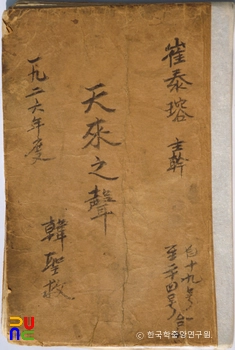 崔泰瑢 主幹
自十九号
至二十四号
天來之聲
一九二六年度
韓聖敎
© 한국학중앙연구원